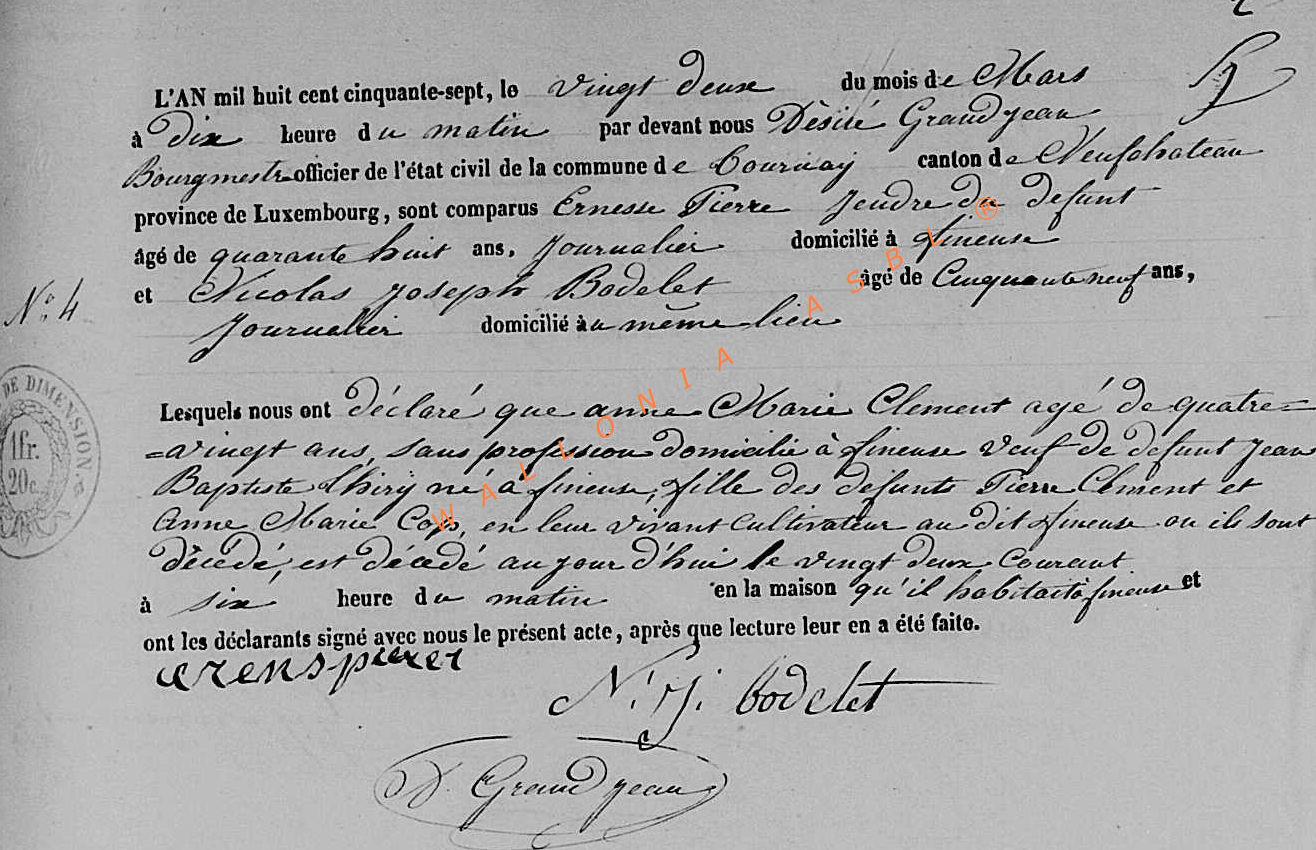 2
L'AN mil huit cent cinquante-sept, le vingt deux du mois de Mars
à dix heure du matin par devant nous Désiré Grandjean
Bourgmestre officier de l'état civil de la commune de Tournay canton de Neufchateau
province de Luxembourg, sont comparus Ernesse Pierre Jendre du defunt
âgé de quarante huit ans, Journalier domicilié à fineuse
et Nicolas Joseph Bodelet âgé de Cinquante neuf ans,
No. 4
Journalier domicilié àu même lieu
DE DIMENSION
1fr.
20c.
Lesquels nous ont déclaré que anne Marie Clement agé de quatre=
=vingt ans, sans profession domicilié à fineuse veuf de defunt Jean
Baptiste thiry né à fineuse, fille des defunts Pierre Clement et
Anne Marie en leur vivant Cultivateur au dit fineuse ou ils sont
décédé, est décédé au jour d'hui le vingt deux Courant
à six heure du matin en la maison qu'il habitait à fineuse et
ont les déclarants signé avec nous le présent acte, après que lecture leur en a été faite.
N. J. bodelet
D. Grandjean
WALLONIA ASBL ®